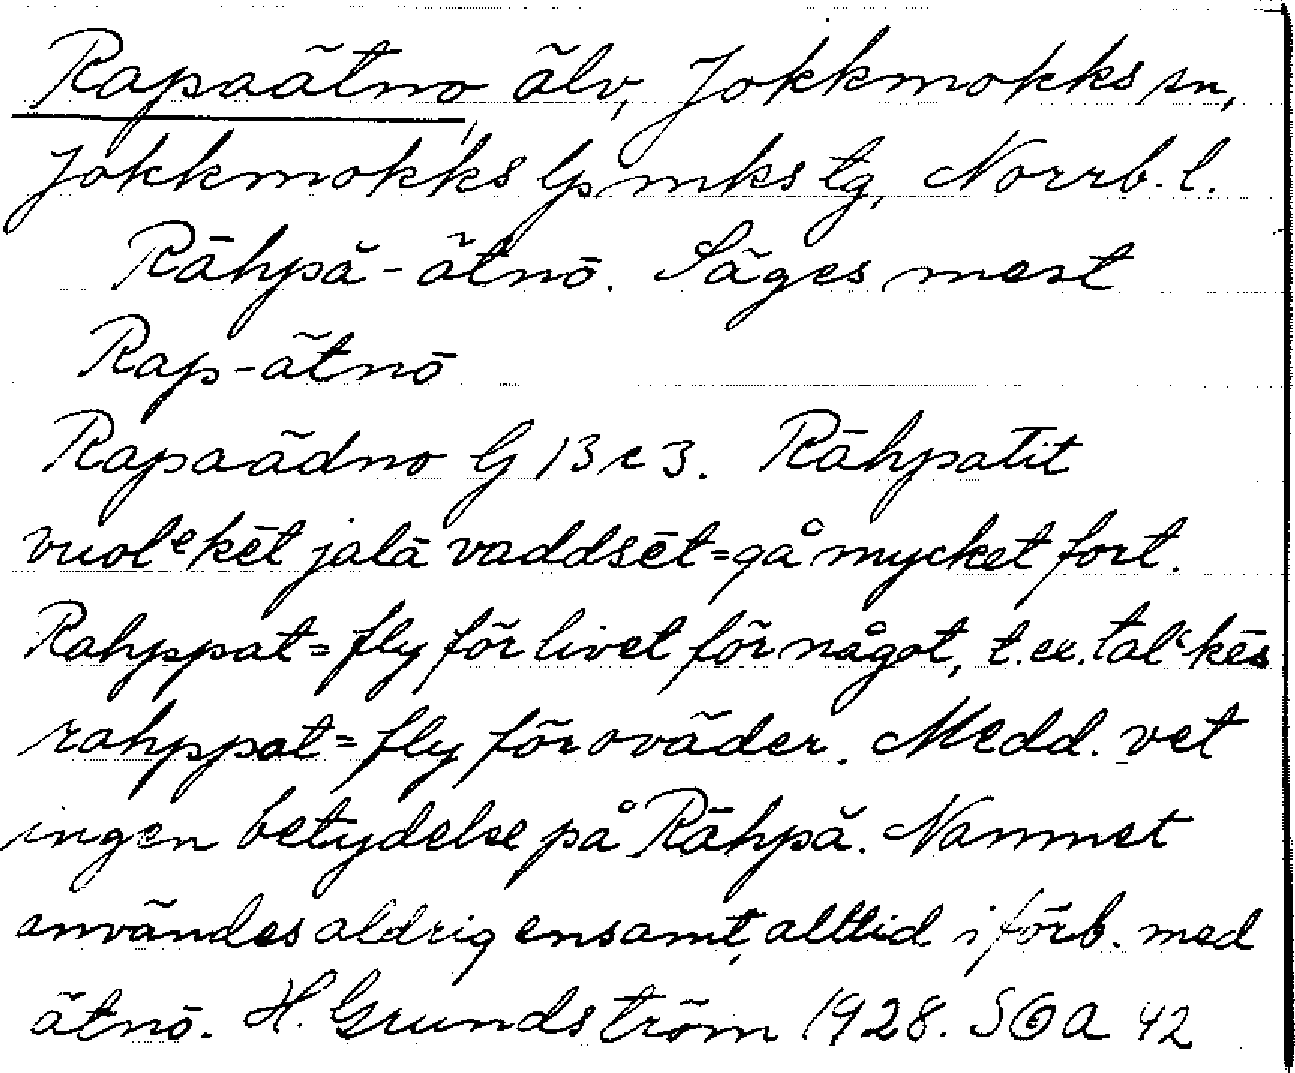 Rapaätno, älv, Jokkmokks sn,
Jokkmokks lpmks tg, Norrb. l.
Rāhpă-ätnō. Säges mest
Rap-ätnō
Rapaädno G 13 c 3. Rāhpatit
vuolᵉkēt jalā vaddsēt=gå mycket fort.
Rahppat=fly för livet för något, t.ex. talᵉkēs
rahppat=fly för oväder. Medd. vet
ingen betydelse på Rāhpă. Namnet
användes aldrig ensamt, alltid i förb. med
ätnō. H. Grundström 1928. SOA 42